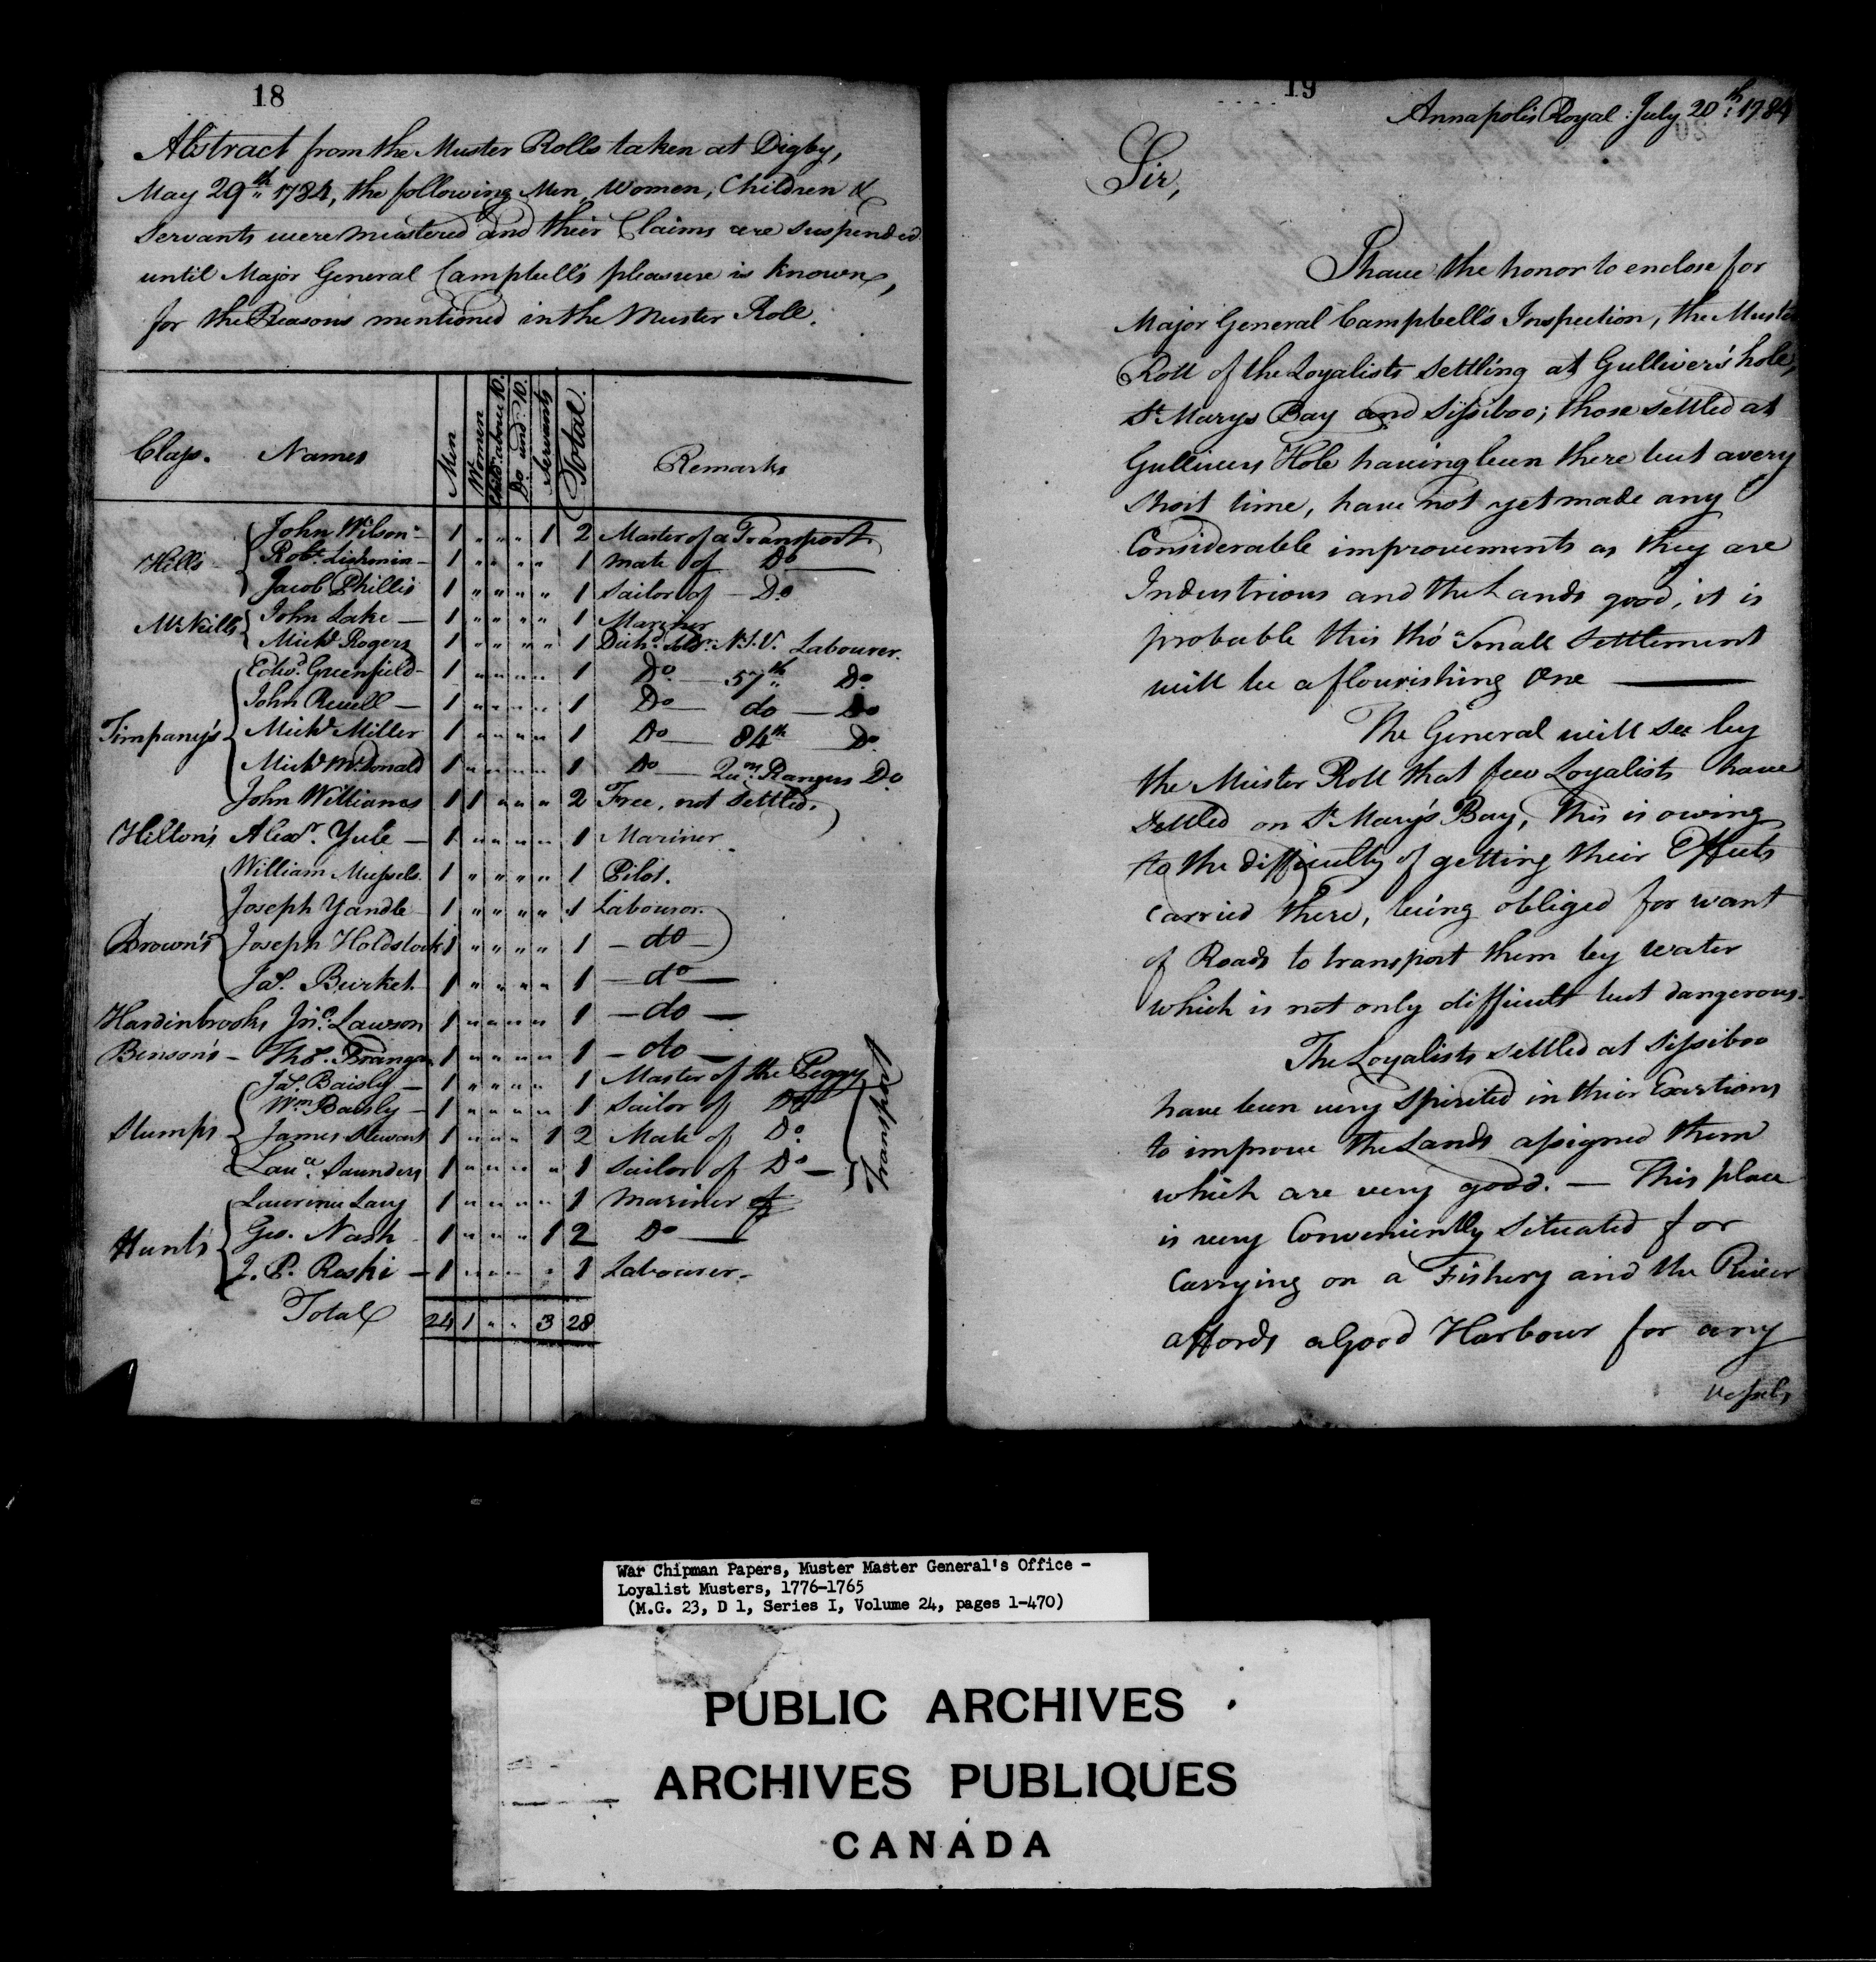 18
Abstract from the Muster Rolls taken at Digby,
May 29th 1784, the following Men, Women, Children &
Servants were mustered and their Claims are suspended
until Major General Campbell's pleasure is known,
for the Reasons mentioned in the Muster Roll.
Class. Names Men Women Child. above 10. Do und. 10. Servants Total. Remarks
Hills John Wilson 1 " " " 1 2 Master of a Transport
Robt. 1 " " " " 1 Mate of Do
Jacob Phillis 1 " " " " 1 Sailor of Do
McNeills John Lake 1 " " " " 1 Mariner
Michl Rogers 1 " " " " 1 Disch. Soldr. N.J.V. Labourer.
Timpany's Edwd. Greenfield 1 " " " " 1 Do 57th Do
John Ruell 1 " " " " 1 Do do Do
Michl Miller 1 " " " " 1 Do 84th Do
Michl McDonald 1 " " " " 1 Do Qun. Rangers Do
John Williams 1 1 " " " 2 Free, not Settled.
Hilton's Alexr. Yule 1 " " " " 1 Mariner
Brown's William Mussels 1 " " " " 1 Pilot.
Joseph Yandle 1 " " " " 1 Labouror.
Joseph Holdstock 1 " " " " 1 do
Jas. Burket 1 " " " " 1 do
Hardinbrooks Jno. Lawson 1 " " " " 1 do
Benson's Thos. Brangan 1 " " " " 1 do
Stumps Jas. Baisly 1 " " " " 1 Master of the Peggy
Wm Baisly 1 " " " " 1 Sailor of Do
James Stewart 1 " " " 1 2 Mate of Do.
Lau. Saunders 1 " " " " 1 Sailor of Do
Transport
Hunt's Laurence Lary 1 " " " " 1 Mariner of
Geo. Nash 1 " " " 1 2 Do
J. P. Reski 1 " " " " 1 Labourer.
Total 24 1 " " 3 28
19
Annapolis Royal July 20th 1784
Sir,
I have the honor to enclose for
Major General Campbell's Inspection, the Muster
Roll of the Loyalists Settling at Gulliver's hole,
St. Marys Bay and Sissiboo; those settled at
Gullivers Hole having been there but a very
Short time, have not yet made any
Considerable improvements as they are
Industrious and the Lands good, it is
probable this tho' Small Settlement
will be a flourishing One
The General will see by
the Muster Roll that few Loyalists have
Settled on St Mary's Bay, This is owing
to the difficulty of getting their Effects
carried there, being obliged for want
of Roads to transport them by water
which is not only difficult but dangerous.
The Loyalists settled at Sissiboo
have been very Spirited in their Exertions
to improve the Lands assigned them
which are very good. — This place
is very Conveniently Situated for
Carrying on a Fishery and the River
affords a Good Harbour for any
vessels
War Chipman Papers, Muster Master General's Office -
Loyalist Musters, 1776-1765
(M.G. 23, D 1, Series I, Volume 24, pages 1-470)
PUBLIC ARCHIVES
ARCHIVES PUBLIQUES
CANADA